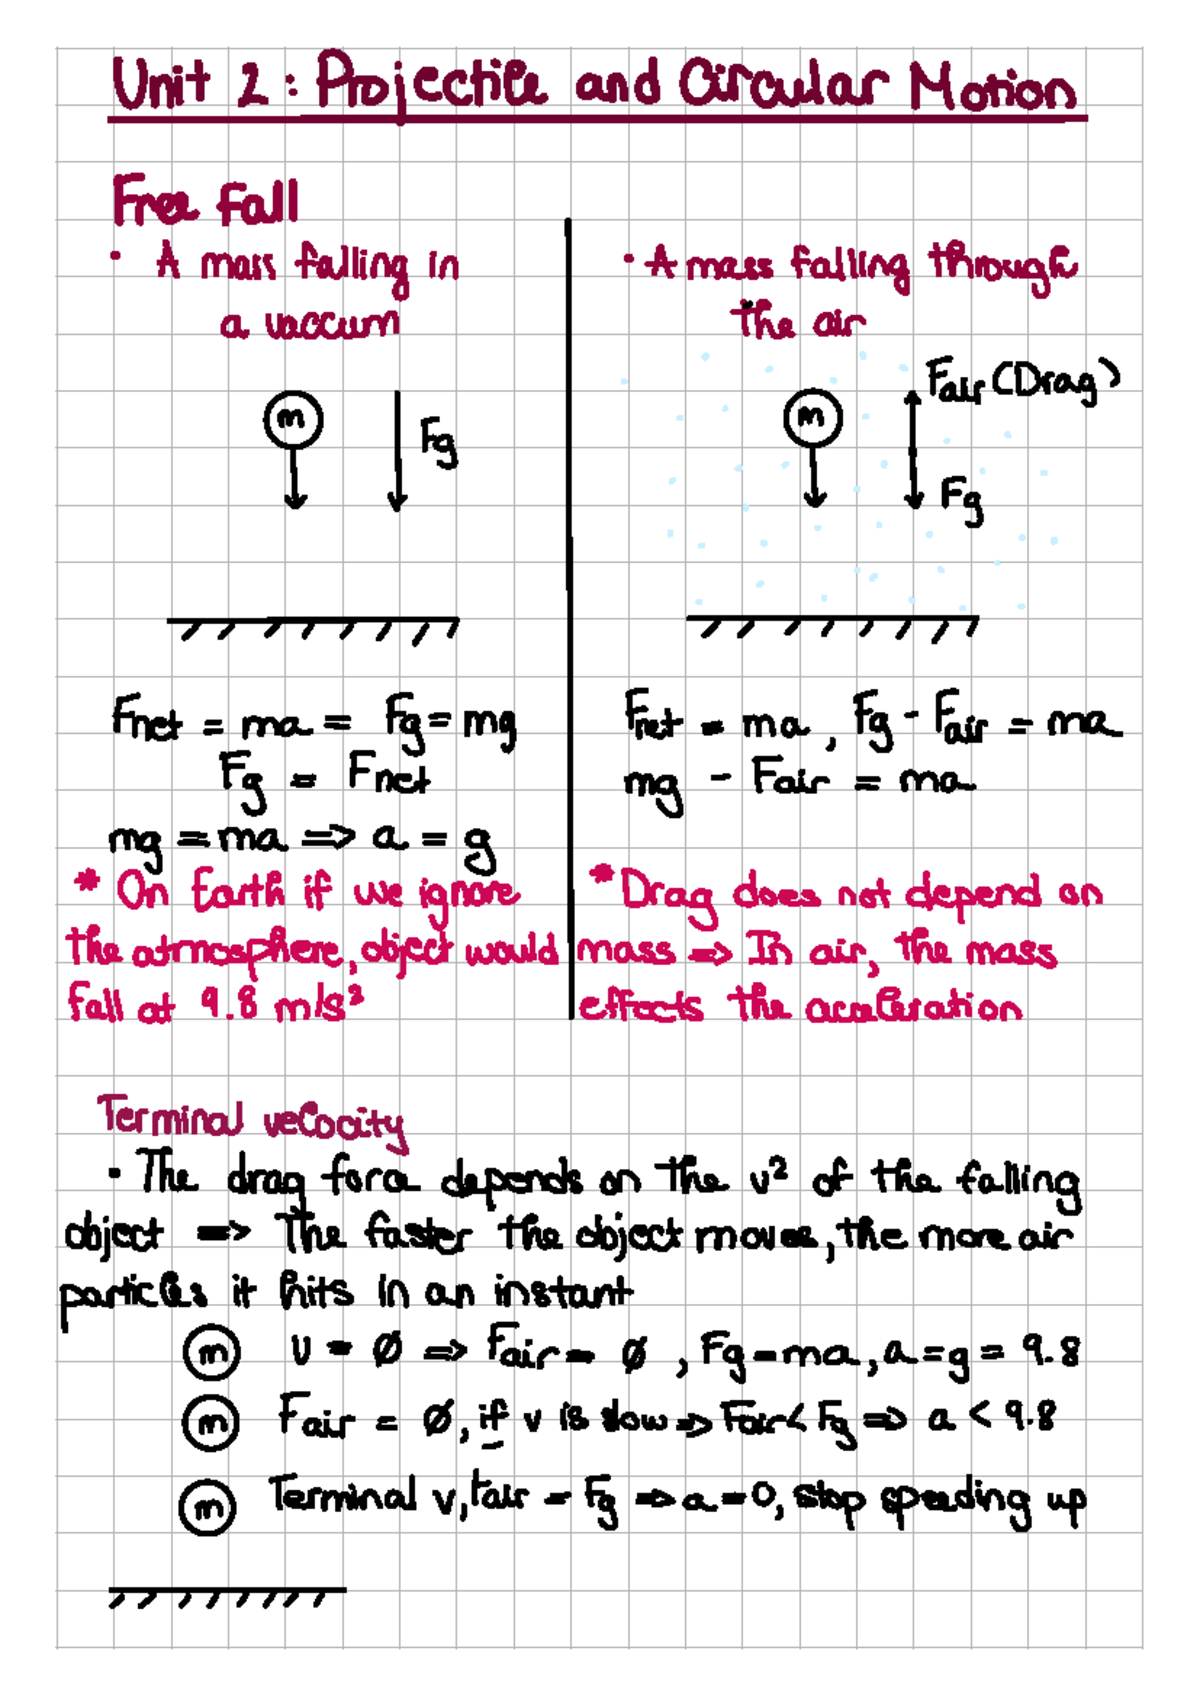 Unit 2: Projectile and Circular Motion
Free fall
• A mass falling in
a vaccum
m
Fg
Fnet = ma = Fg = mg
Fg = Fnet
mg = ma => a = g
* On Earth if we ignore
the atmosphere, object would
fall at 9.8 m/s²
• A mass falling through
the air
Fair (Drag)
m
Fg
Fnet = ma, Fg - Fair = ma
mg - Fair = ma
* Drag does not depend on
mass => In air, the mass
effects the acceleration
Terminal velocity
• The drag force depends on the v² of the falling
object => The faster the object moves, the more air
particles it hits in an instant
m v = Ø => Fair = Ø, Fg = ma, a = g = 9.8
m Fair = Ø, if v is slow => Fair < Fg => a < 9.8
m Terminal v, Fair = Fg => a = 0, stop speeding up